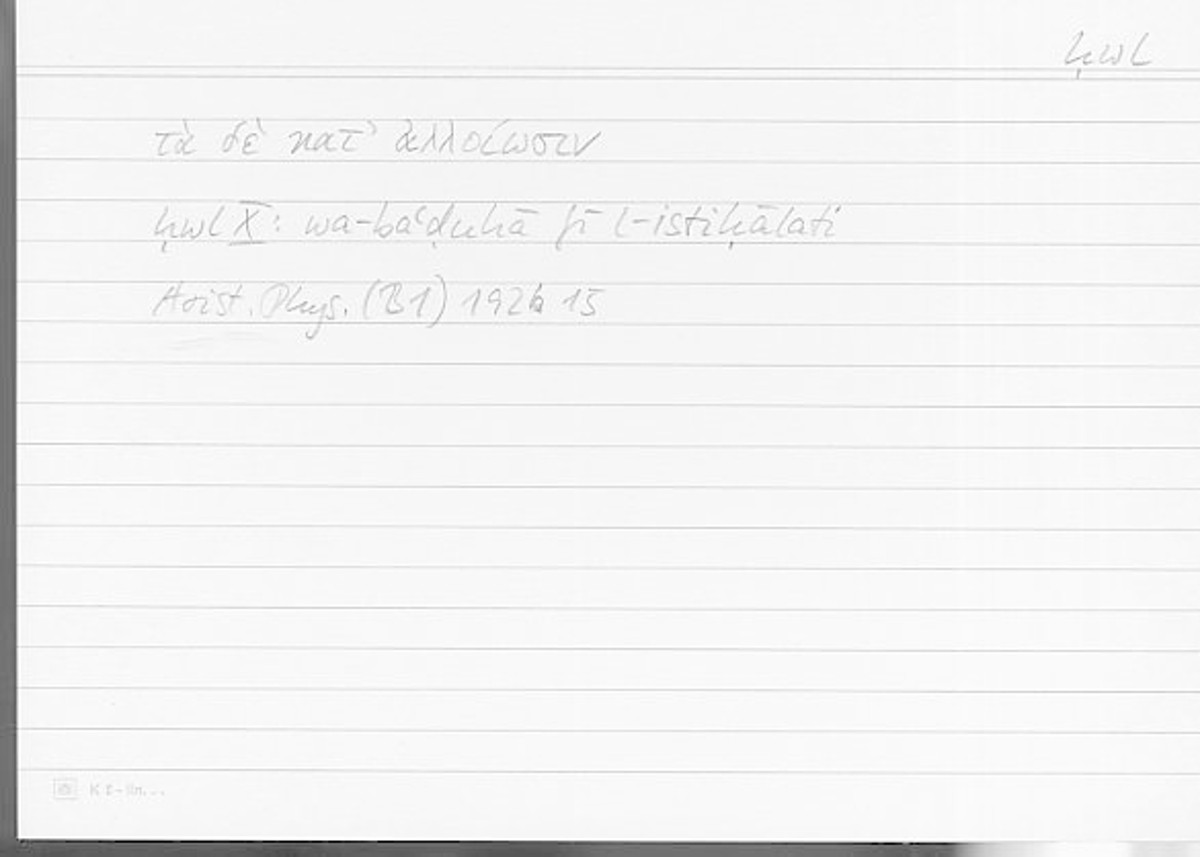 ḥwl
τὰ δὲ κατ' ἀλλοίωσιν
ḥwl X: wa-baʿḍuhā fī l-istiḥālati
Arist. Phys. (B1) 192b 15